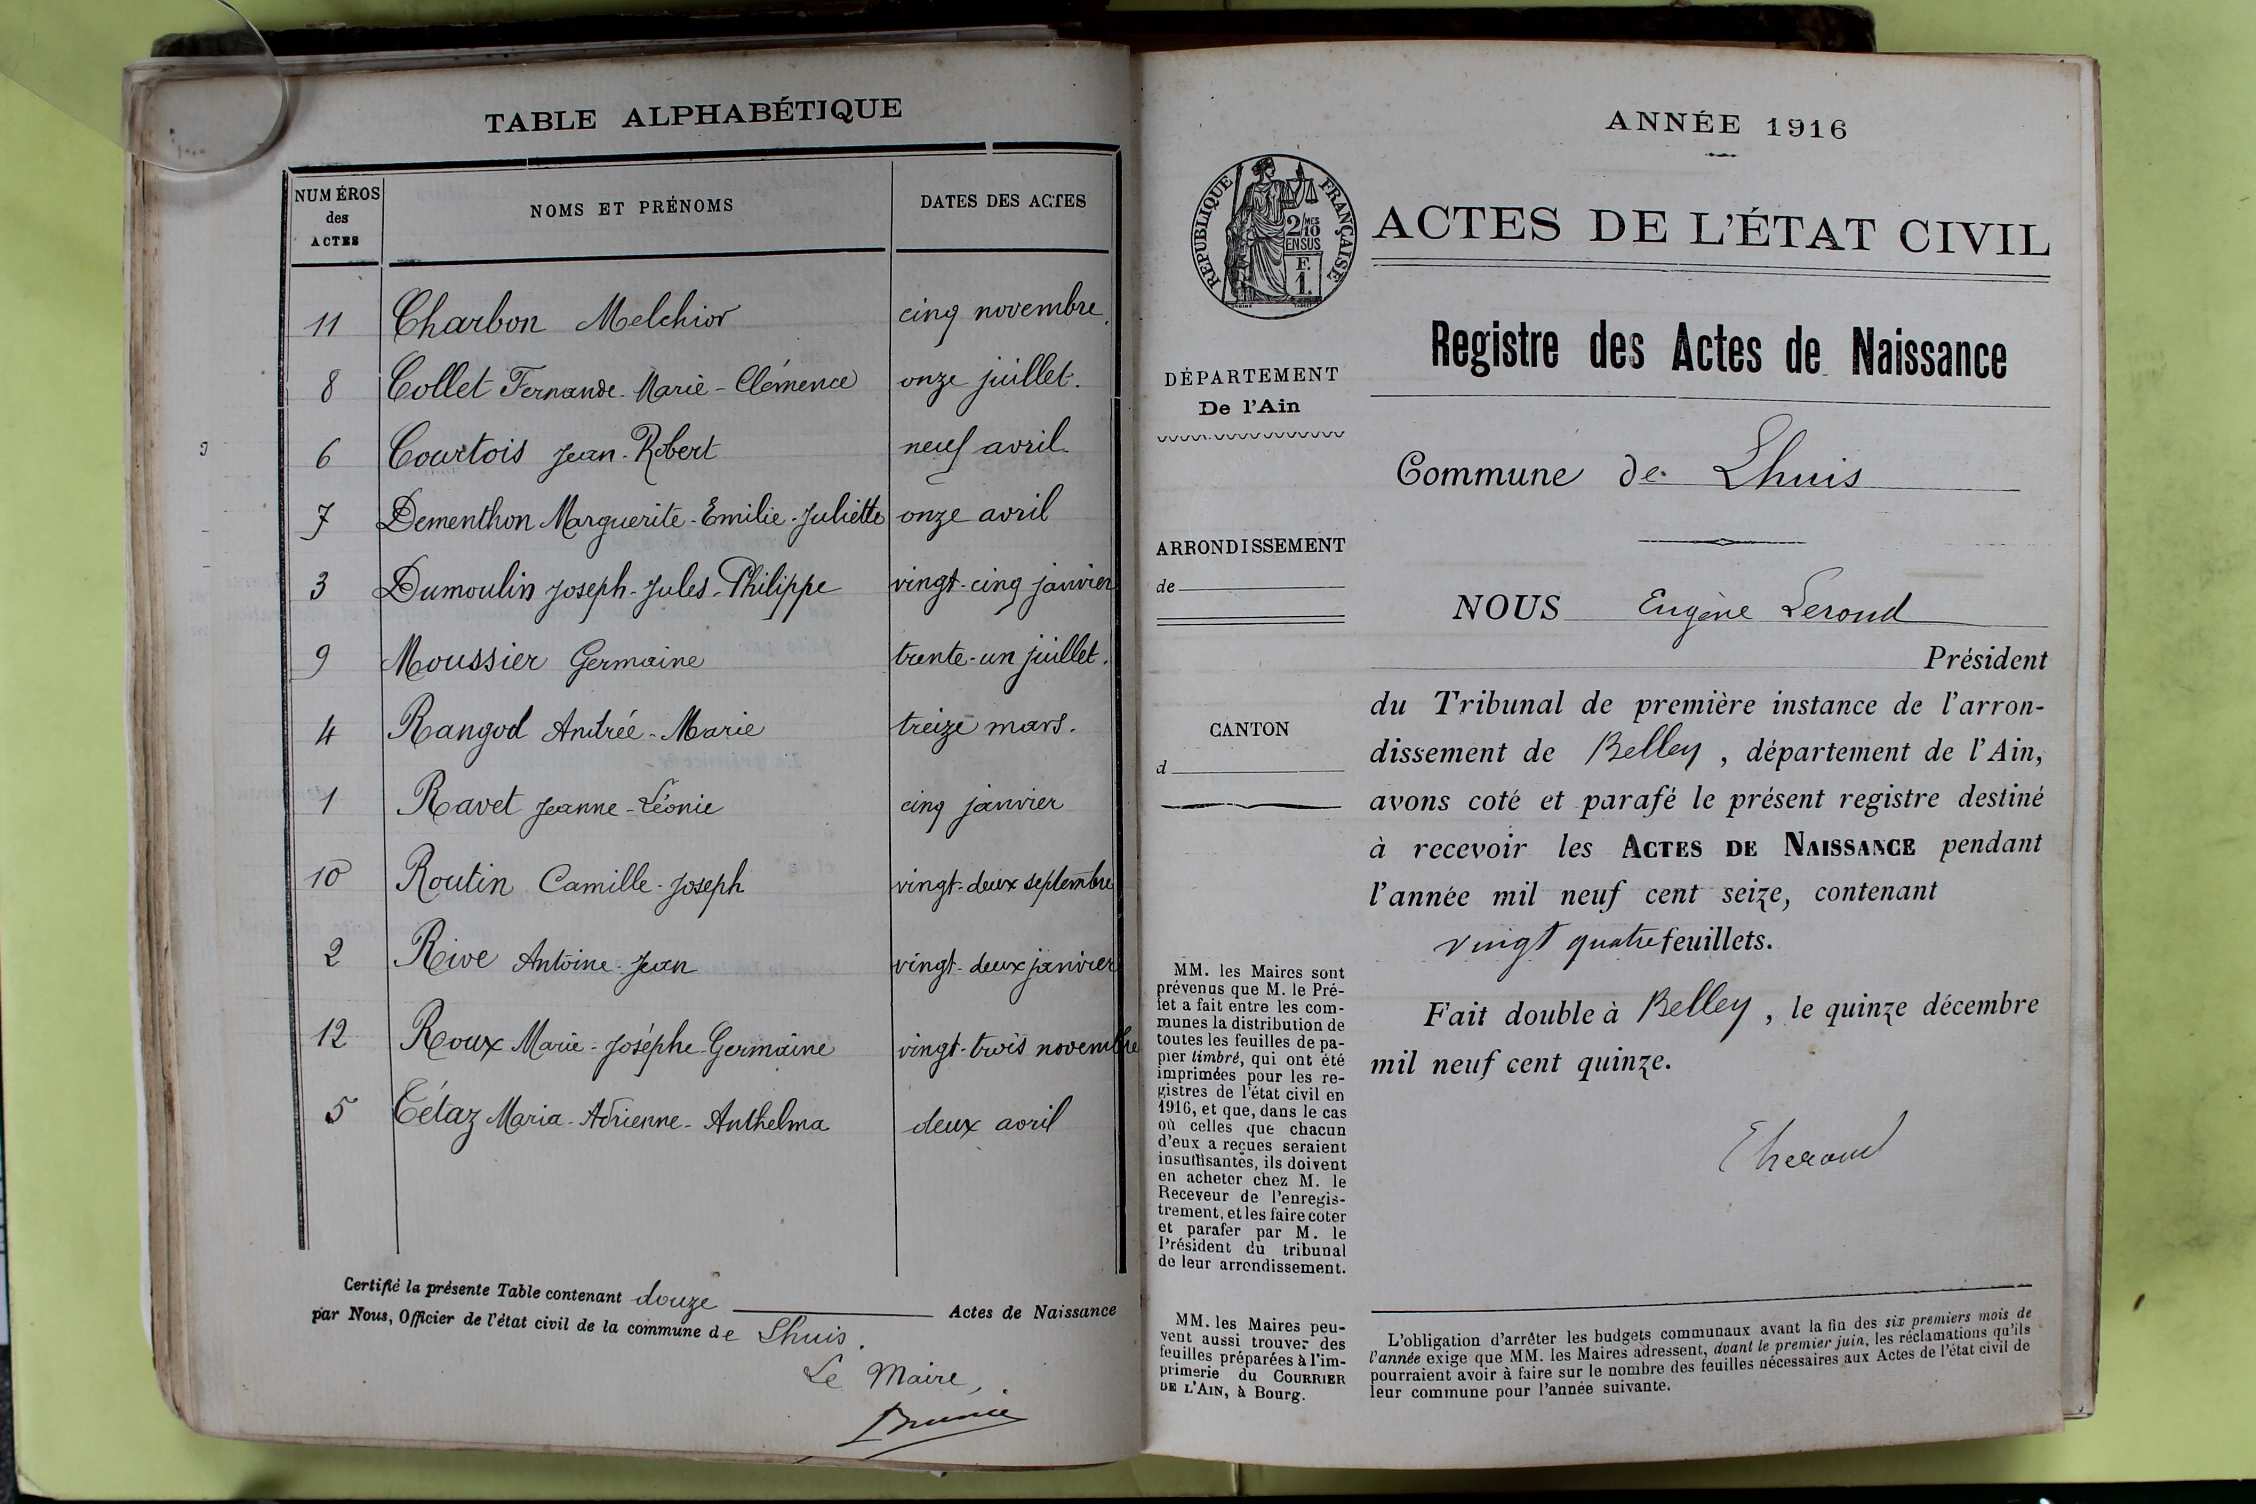 TABLE ALPHABÉTIQUE
NUMÉROS des ACTES
NOMS ET PRÉNOMS
DATES DES ACTES
11 Charbon Melchior cinq novembre.
8 Collet Fernande-Marie-Clémence onze juillet.
6 Courtois Jean-Robert neuf avril.
7 Dementhon Marguerite-Emilie-Juliette onze avril
3 Dumoulin Joseph-Jules-Philippe vingt-cinq janvier
9 Moussier Germaine trente-un juillet.
4 Rangod Andrée-Marie treize mars.
1 Ravet Jeanne-Léonie cinq janvier
10 Routin Camille-Joseph vingt-deux septembre
2 Rive Antoine-Jean vingt-deux janvier
12 Roux Marie-Josèphe-Germaine vingt-trois novembre
5 Tétaz Maria-Adrienne-Anthelma deux avril
Certifié la présente Table contenant douze Actes de Naissance
par Nous, Officier de l'état civil de la commune de Lhuis.
Le Maire,
ANNÉE 1916
RÉPUBLIQUE FRANÇAISE
2/10
MES
EN SUS
F.
1.
ACTES DE L'ÉTAT CIVIL
Registre des Actes de Naissance
DÉPARTEMENT
De l'Ain
Commune de Lhuis
ARRONDISSEMENT
de
CANTON
d
NOUS Eugène Leroud
Président
du Tribunal de première instance de l'arron-
dissement de Belley, département de l'Ain,
avons coté et parafé le présent registre destiné
à recevoir les ACTES DE NAISSANCE pendant
l'année mil neuf cent seize, contenant
vingt quatre feuillets.
Fait double à Belley, le quinze décembre
mil neuf cent quinze.
MM. les Maires sont
prévenus que M. le Pré-
fet a fait entre les com-
munes la distribution de
toutes les feuilles de pa-
pier timbré, qui ont été
imprimées pour les re-
gistres de l'état civil en
1916, et que, dans le cas
où celles que chacun
d'eux a reçues seraient
insuffisantes, ils doivent
en acheter chez M. le
Receveur de l'enregis-
trement, et les faire coter
et parafer par M. le
Président du tribunal
de leur arrondissement.
MM. les Maires peu-
vent aussi trouver des
feuilles préparées à l'im-
primerie du COURRIER
DE L'AIN, à Bourg.
L'obligation d'arrêter les budgets communaux avant la fin des six premiers mois de
l'année exige que MM. les Maires adressent, avant le premier juin, les réclamations qu'ils
pourraient avoir à faire sur le nombre des feuilles nécessaires aux Actes de l'état civil de
leur commune pour l'année suivante.